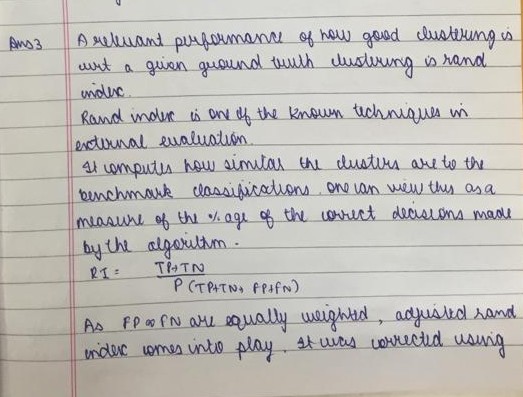 Ans 3 A reluant performance of how good clustering is
wrt a given ground truth clustering is rand
index.
Rand index is one of the known techniques in
external evaluation.
It computes how similar the clusters are to the
benchmark classifications. one can view this as a
measure of the % age of the correct decisions made
by the algorithm.
RI = TP+TN
P (TP+TN+ FP+FN)
As FP or FN are equally weighted, adjusted rand
index comes into play. It was corrected using